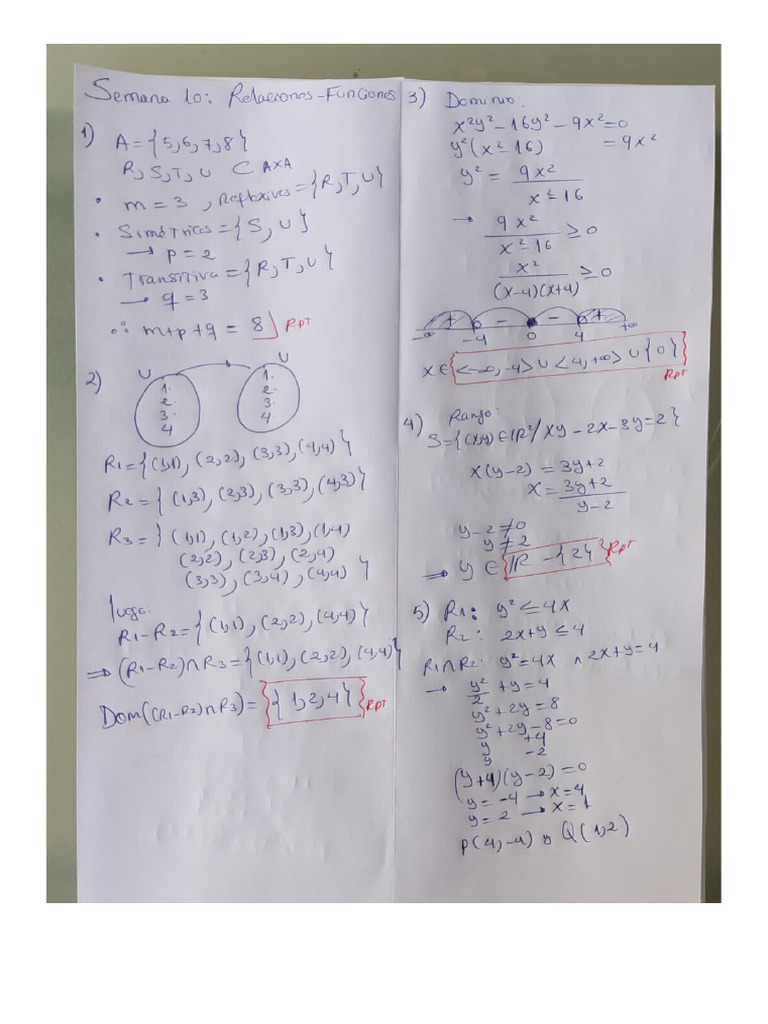 Semana 10: Relaciones-Funciones
1) A={5,6,7,8}
R,S,T,U ⊂ A×A
• m=3, Reflexivas={R,T,U}
• Simétricas={S,U}
→ p=2
• Transitiva={R,T,U}
→ q=3
∴ m+p+q = 8 Rpt
2) U U
1. 1.
2. 2.
3. 3.
4 4
R1={(1,1),(2,2),(3,3),(4,4)}
R2={(1,3),(2,3),(3,3),(4,3)}
R3={(1,1),(1,2),(1,3),(1,4)
(2,2),(2,3),(2,4)
(3,3),(3,4),(4,4)}
luego:
R1-R2={(1,1),(2,2),(4,4)}
⇒ (R1-R2)∩R3={(1,1),(2,2),(4,4)}
Dom((R1-R2)∩R3)={1,2,4} Rpt
3) Dominio:
x²y²-16y²-9x²=0
y²(x²-16) = 9x²
y² = 9x²/x²-16
→ 9x²/x²-16 ≥0
x²/(x-4)(x+4) ≥0
+ - - +
-∞ -4 0 4 +∞
x ∈ <-∞,-4> ∪ <4,+∞> ∪ {0}
Rpt
4) Rango:
S={(x,y)∈ℝ²/xy-2x-3y=2}
x(y-2) = 3y+2
x = 3y+2/y-2
y-2≠0
y≠2
⇒ y ∈ ℝ-{2} Rpt
5) R1: y²≤4x
R2: 2x+y≤4
R1∩R2: y²=4x ∧ 2x+y=4
→ y²/2 +y=4
y²+2y=8
y²+2y-8=0
y +4
y -2
(y+4)(y-2)=0
y=-4 → x=4
y=2 → x=1
P(4,-4) y Q(1,2)